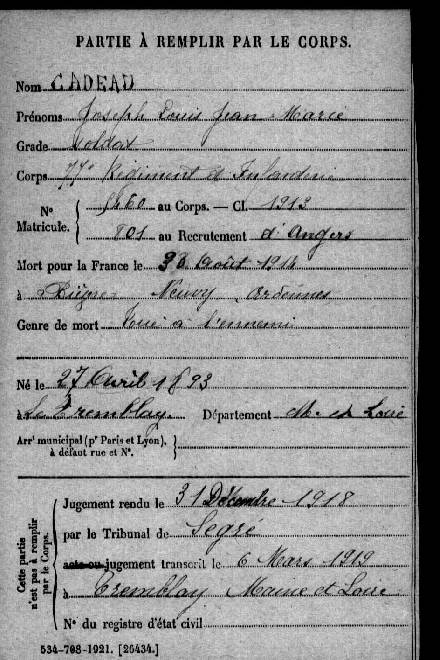 PARTIE À REMPLIR PAR LE CORPS.
Nom CADEAU
Prénoms Joseph Louis Jean Marie
Grade Soldat
Corps 77e Régiment d'Infanterie
N° Matricule. { 5460 au Corps. — Cl. 1913
801 au Recrutement d'Angers
Mort pour la France le 30 Août 1914
à Neuvy Ardennes
Genre de mort Tué à l'ennemi
Né le 27 Avril 1893
à Le Tremblay Département M. et Loire
Arrt municipal (pr Paris et Lyon), à défaut rue et N°. }
Cette partie n'est pas à remplir par le Corps.
Jugement rendu le 31 Décembre 1918
par le Tribunal de Segré
acte ou jugement transcrit le 6 Mars 1919
à Tremblay Maine et Loire
N° du registre d'état civil
534-708-1921. [26434.]